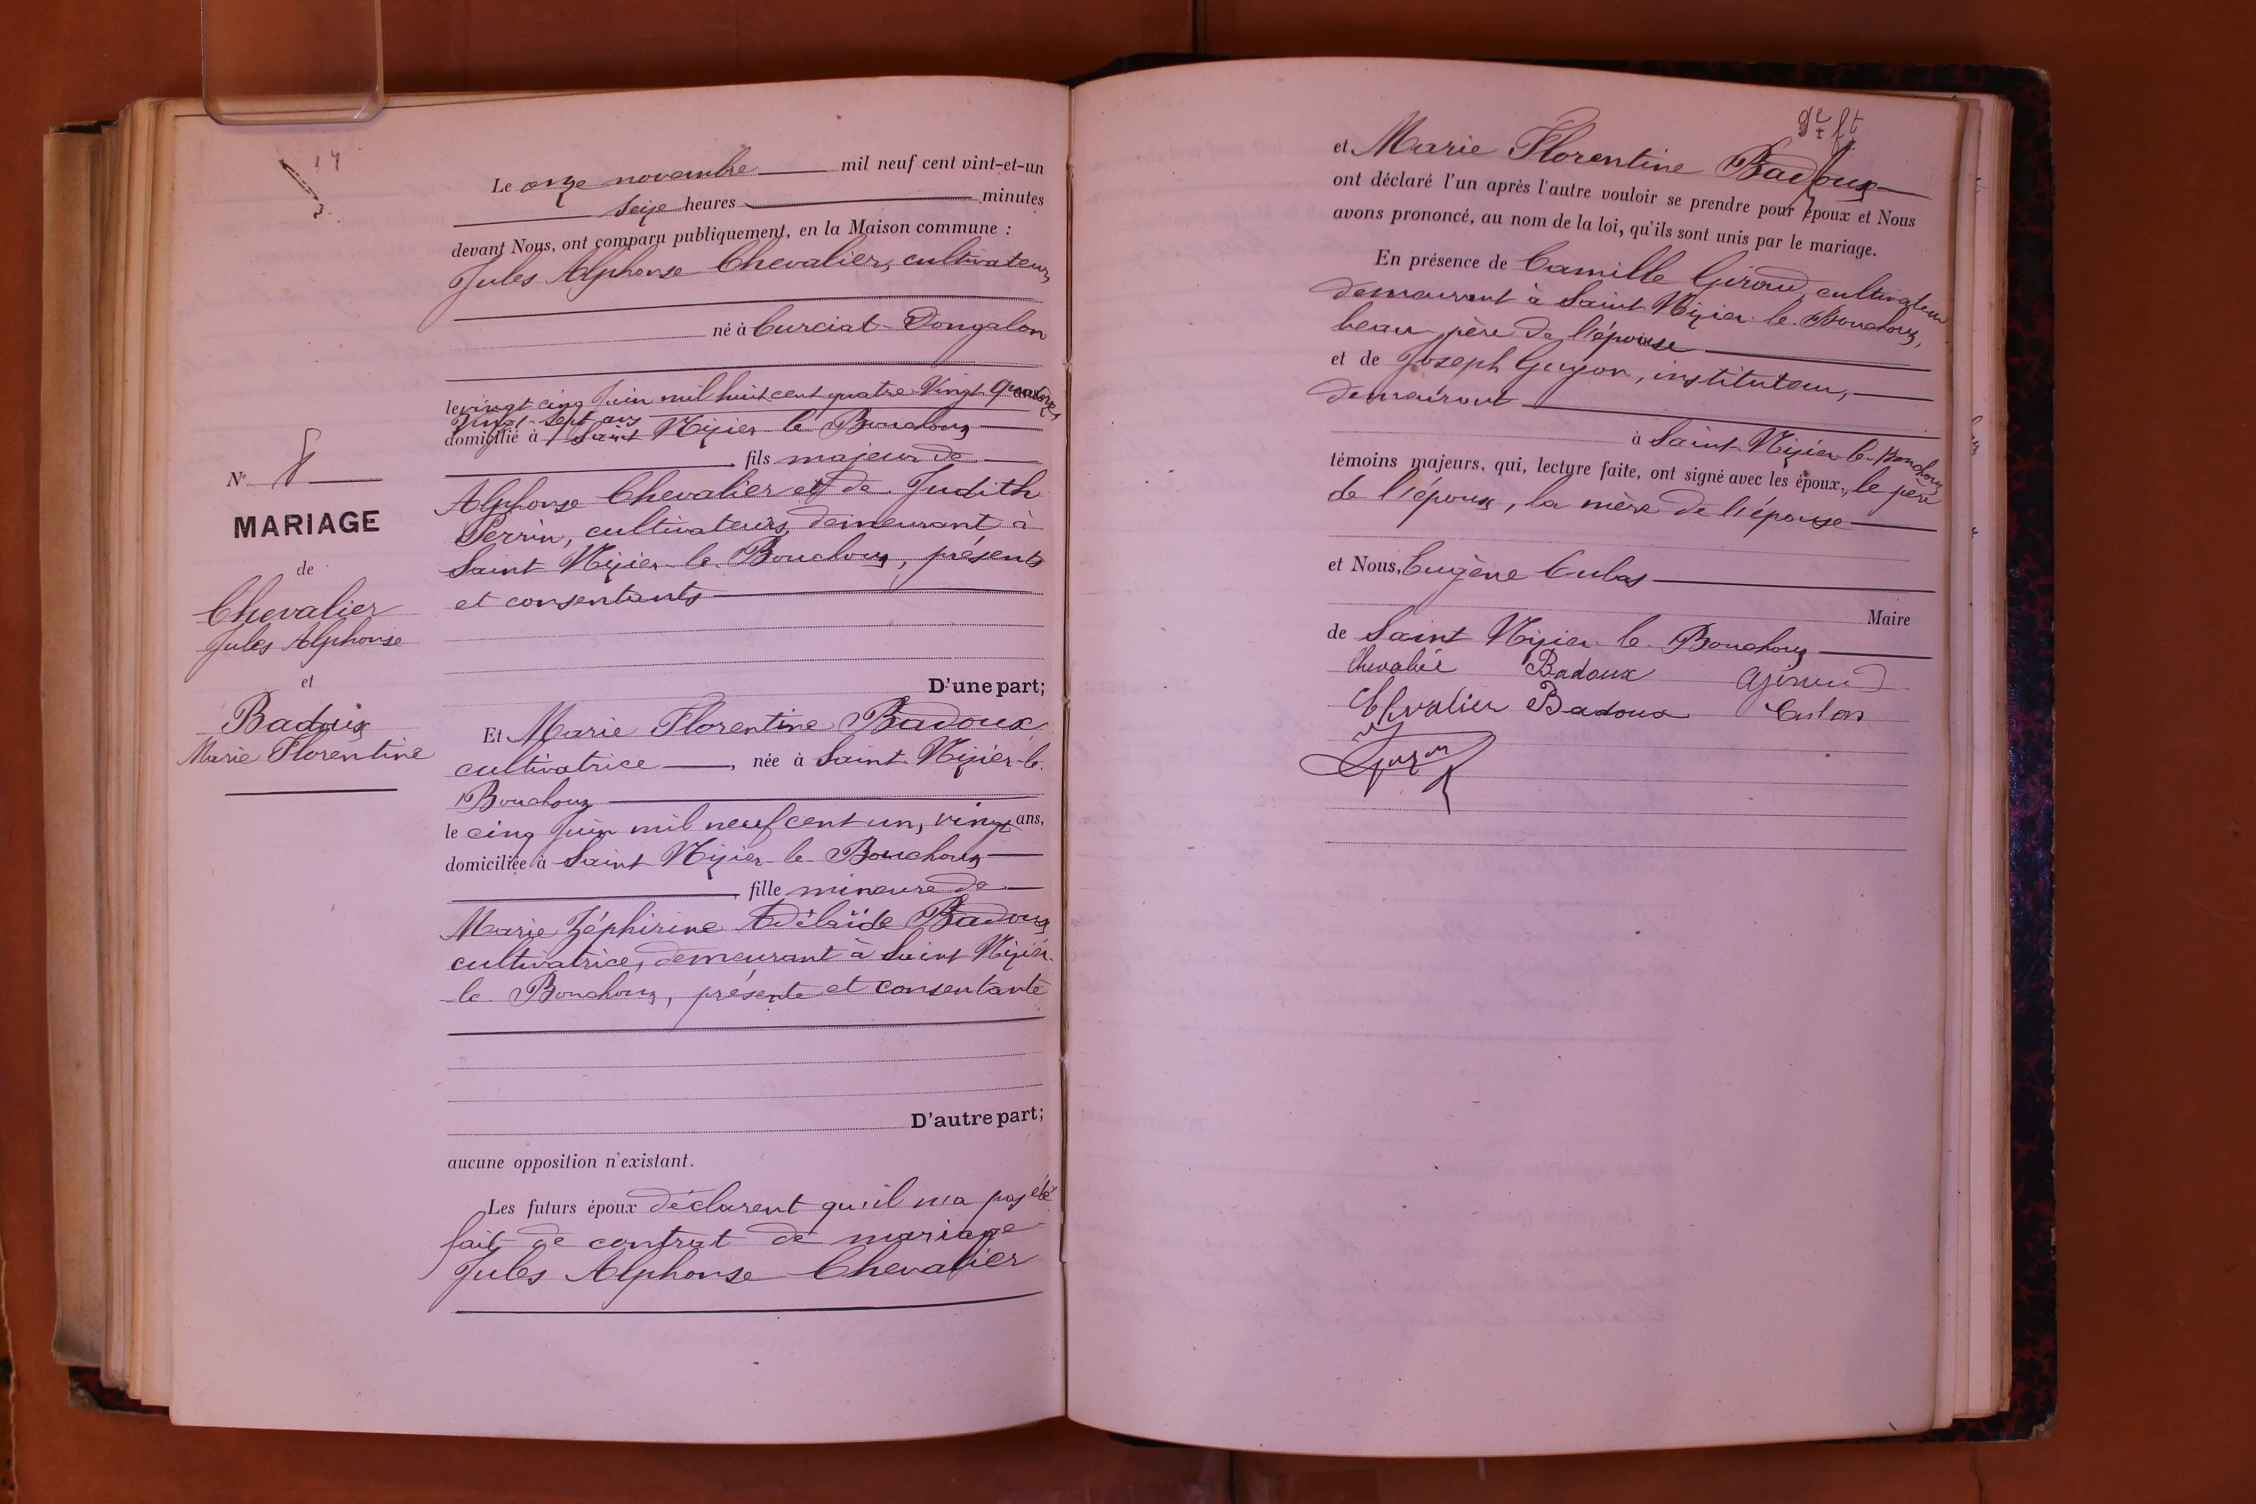 14
Le onze novembre mil neuf cent vint-et-un
seize heures minutes
devant Nous, ont comparu publiquement, en la Maison commune :
Jules Alphonse Chevalier, cultivateur,
né à Curciat-Dongalon
le vingt cinq juin mil huit cent quatre Vingt quatorze
vingt-sept ans
domicilié à Saint Nizier-le-Bouchoux
fils majeur de
Alphonse Chevalier et de Judith
Perrin, cultivateurs, demeurant à
Saint Nizier-le-Bouchoux, présents
et consentants
D'une part;
N° 8
MARIAGE
de
Chevalier
Jules Alphonse
et
Badoux
Marie Florentine
Et Marie Florentine Badoux
cultivatrice, née à Saint Nizier-le-
Bouchoux
le cinq Juin mil neuf cent un, vingt ans,
domiciliée à Saint Nizier-le-Bouchoux
fille mineure de
Marie Zéphirine Adélaïde Badoux
cultivatrice, demeurant à Saint Nizier-
le-Bouchoux, présente et consentante
D'autre part;
aucune opposition n'existant.
Les futurs époux déclarent qu'il n'a pas été
fait de contrat de mariage
Jules Alphonse Chevalier
et Marie Florentine Badoux
ont déclaré l'un après l'autre vouloir se prendre pour époux et Nous
avons prononcé, au nom de la loi, qu'ils sont unis par le mariage.
En présence de Camille Giroud, cultivateur
demeurant à Saint Nizier-le-Bouchoux,
beau-père de l'épouse
et de Joseph Guyon, instituteur,
demeurant
à Saint-Nizier-le-Bouchoux
témoins majeurs, qui, lecture faite, ont signé avec les époux, le père
de l'époux, la mère de l'épouse
et Nous, Eugène Cubas
Maire
de Saint Nizier-le-Bouchoux
Chevalié Badoux
Chevalier Badoux
Guyon